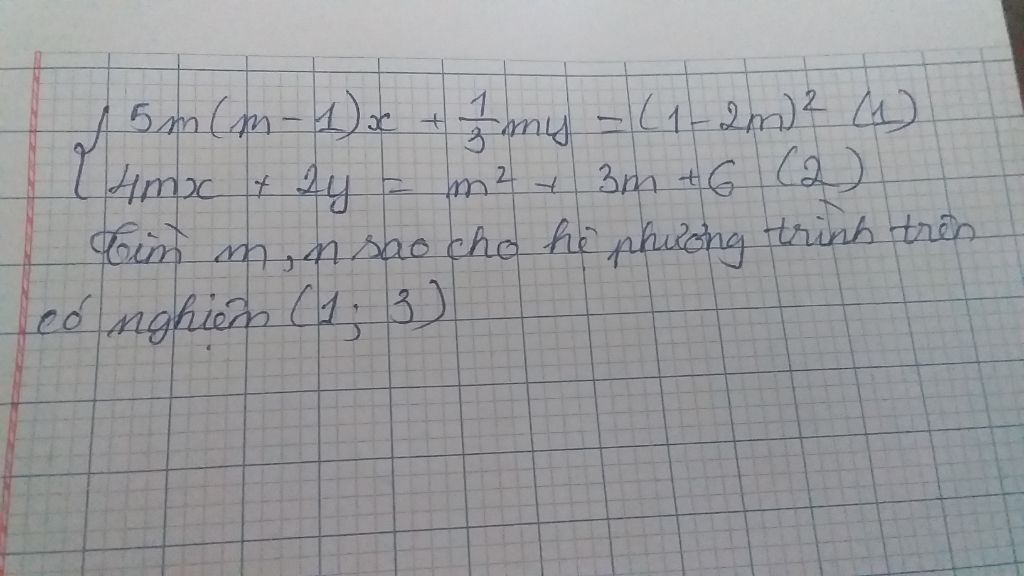 { 5m(m-1)x + 1/3 my = (1-2m)² (1)
4mx + 2y = m² + 3m + 6 (2)
Tìm m, n sao cho hệ phương trình trên
có nghiệm (1; 3)